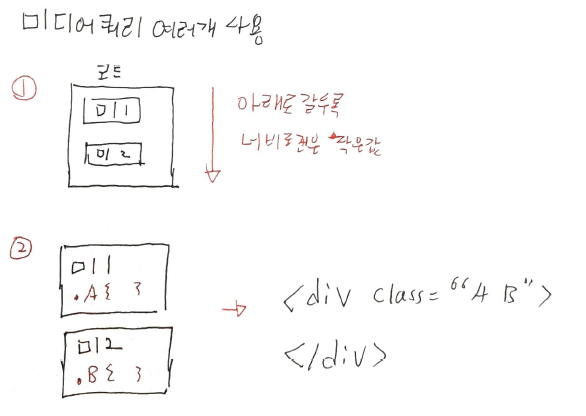 미디어쿼리 여러개 사용
① 코드
미1
미2
아래로 갈수록
너비조건은 작은값
②
미1
.A{ }
미2
.B{ }
→ <div class="A B">
</div>